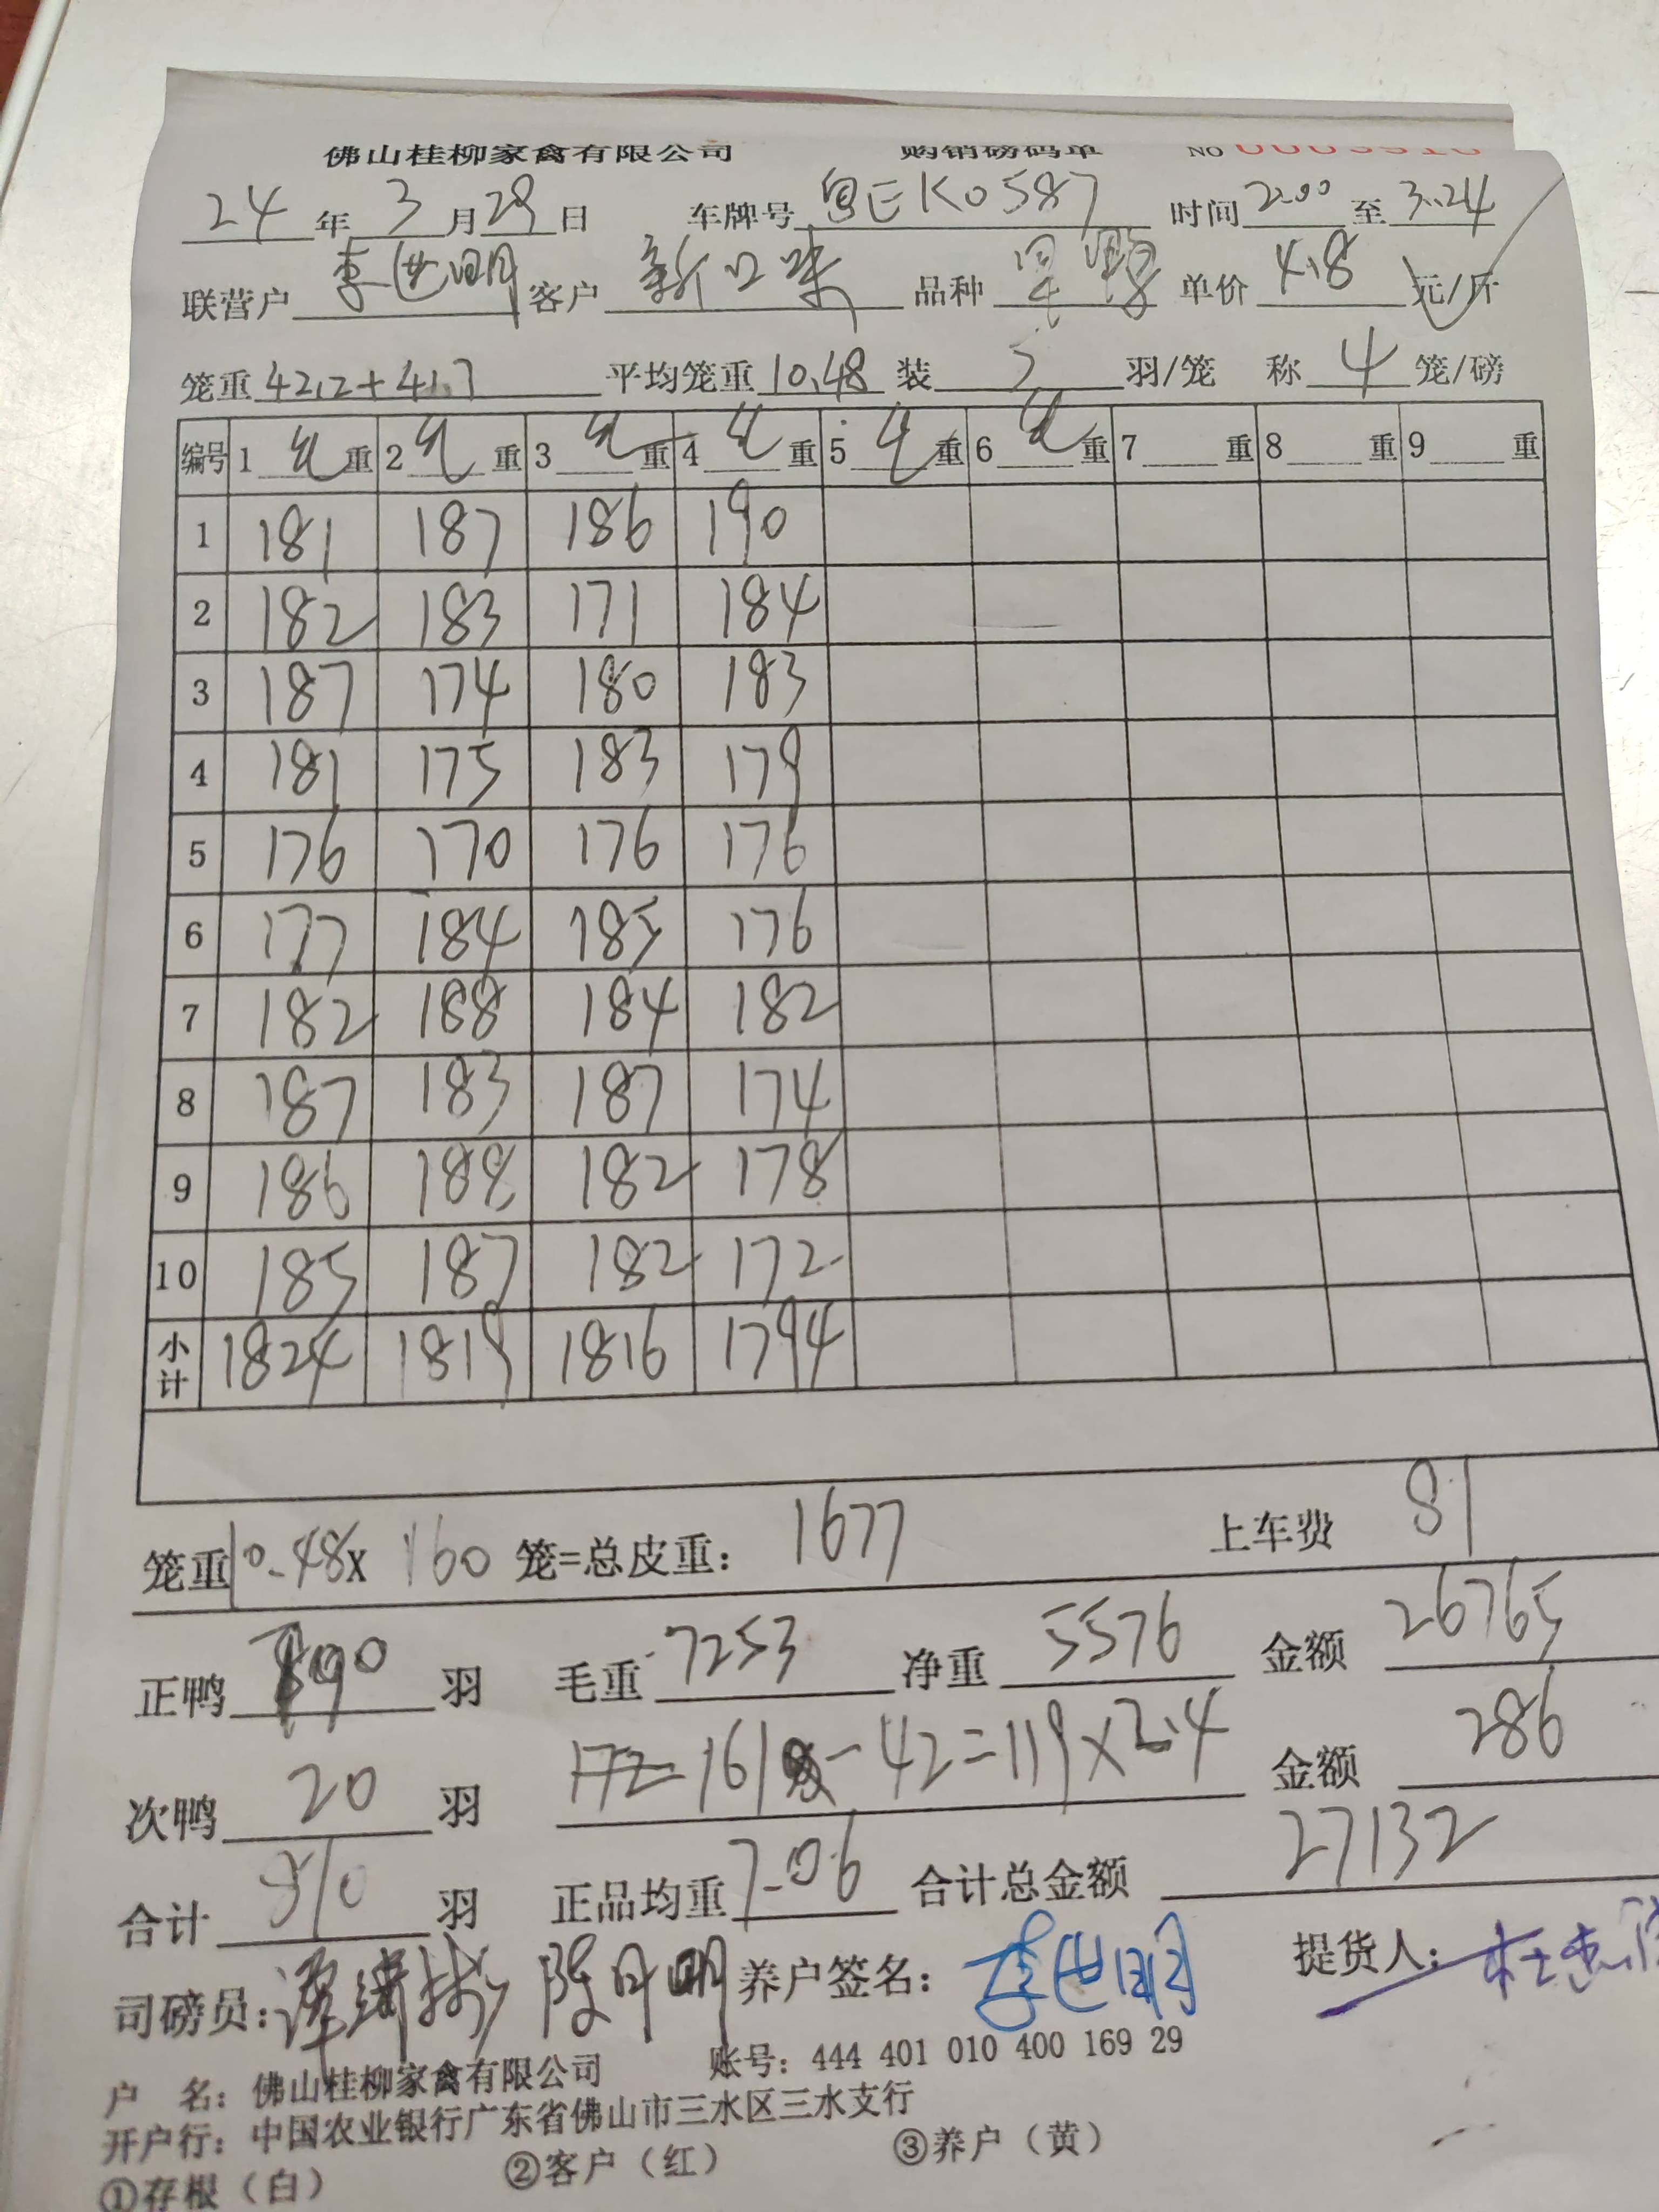 佛山桂柳家禽有限公司 购销磅码单 NO
24年3月29日 车牌号粤EK0587 时间2:00至3:24
联营户李世明 客户新口味 品种 单价4.8元/斤
笼重42.2+41.7 平均笼重10.48 装5羽/笼 称4笼/磅
编号 1 重 2 重 3 重 4 重 5 重 6 重 7 重 8 重 9 重
1 181 187 186 190
2 182 183 171 184
3 187 174 180 183
4 181 175 183 179
5 176 170 176 176
6 177 184 185 176
7 182 188 184 182
8 187 183 187 174
9 186 188 182 178
10 185 187 182 172
小计 1824 1819 1816 1794
笼重10.48x160笼=总皮重: 1677 上车费 81
正鸭790羽 毛重7253 净重5576 金额26765
次鸭20羽 172 161-42=119×2.4 金额286
合计810羽 正品均重7.06 合计总金额27132
司磅员: 养户签名:李世明 提货人:
户 名: 佛山桂柳家禽有限公司 账号: 444 401 010 400 169 29
开户行: 中国农业银行广东省佛山市三水区三水支行
①存根（白） ②客户（红） ③养户（黄）